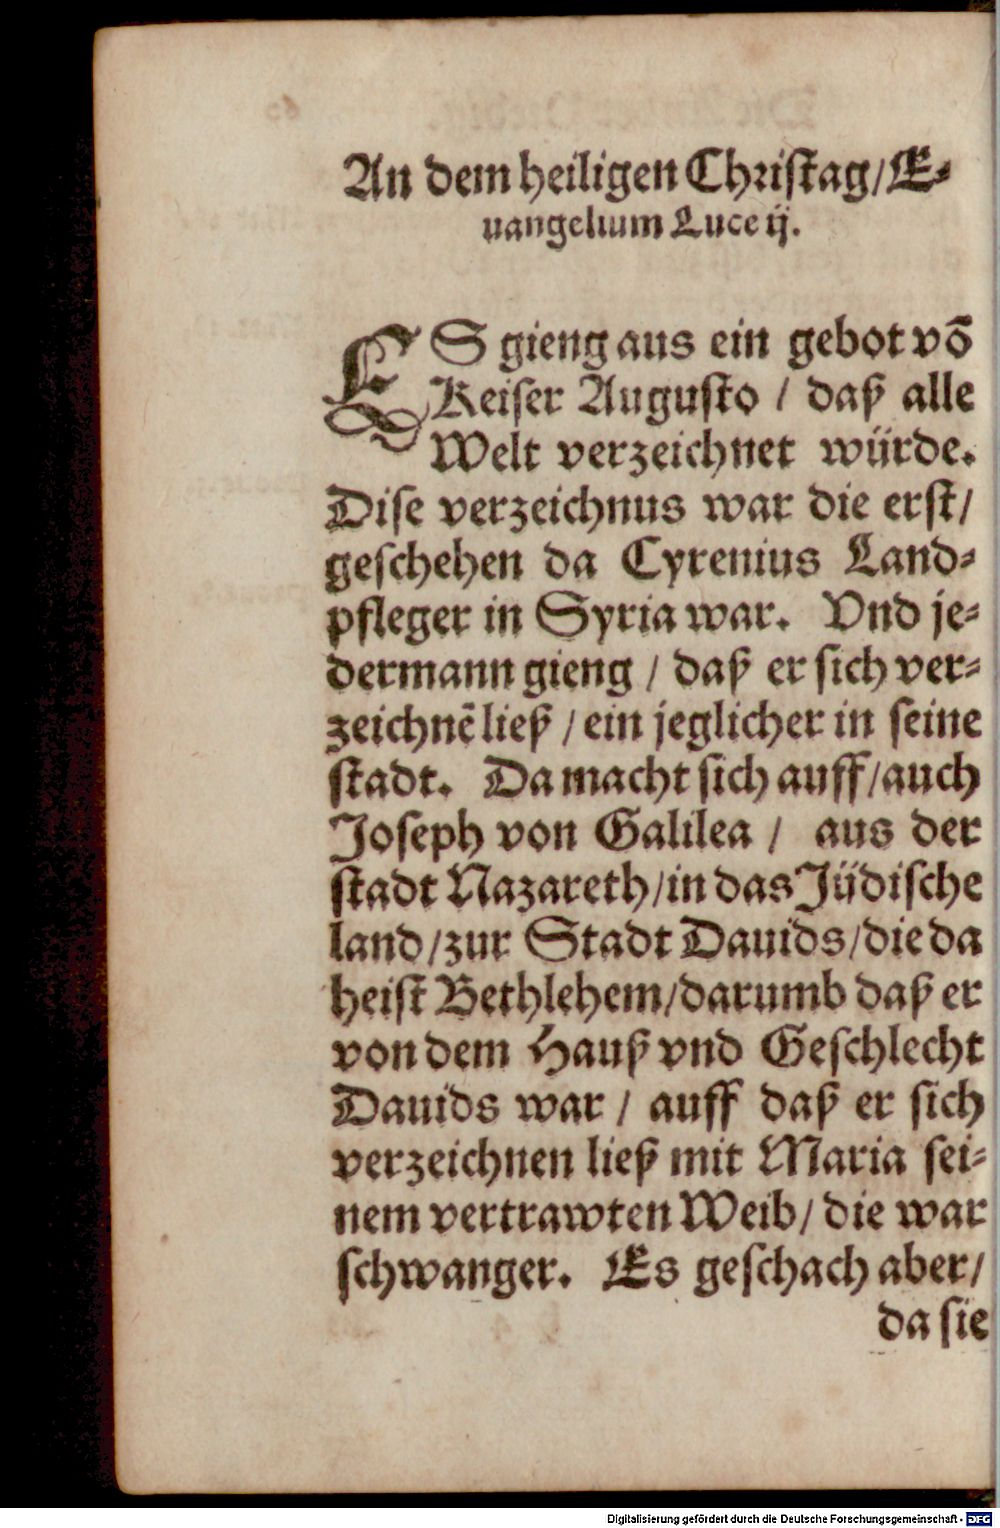 An dem heiligen Christag/ E⸗
uangelium Luce ij.
ES gieng aus ein gebot võ
Keiser Augusto / daß alle
Welt verzeichnet würde.
Dise verzeichnus war die erst/
geschehen da Cyrenius Land⸗
pfleger in Syria war. Vnd je⸗
dermann gieng / daß er sich ver⸗
zeichnẽ ließ / ein jeglicher in seine
stadt. Da macht sich auff/ auch
Joseph von Galilea / aus der
stadt Nazareth/ in das Jüdische
land/ zur Stadt Dauids/ die da
heist Bethlehem/ darumb daß er
von dem Hauß vnd Geschlecht
Dauids war / auff daß er sich
verzeichnen ließ mit Maria sei⸗
nem vertrawten Weib/ die war
schwanger. Es geschach aber/
da sie
Digitalisierung gefördert durch die Deutsche Forschungsgemeinschaft - DFG